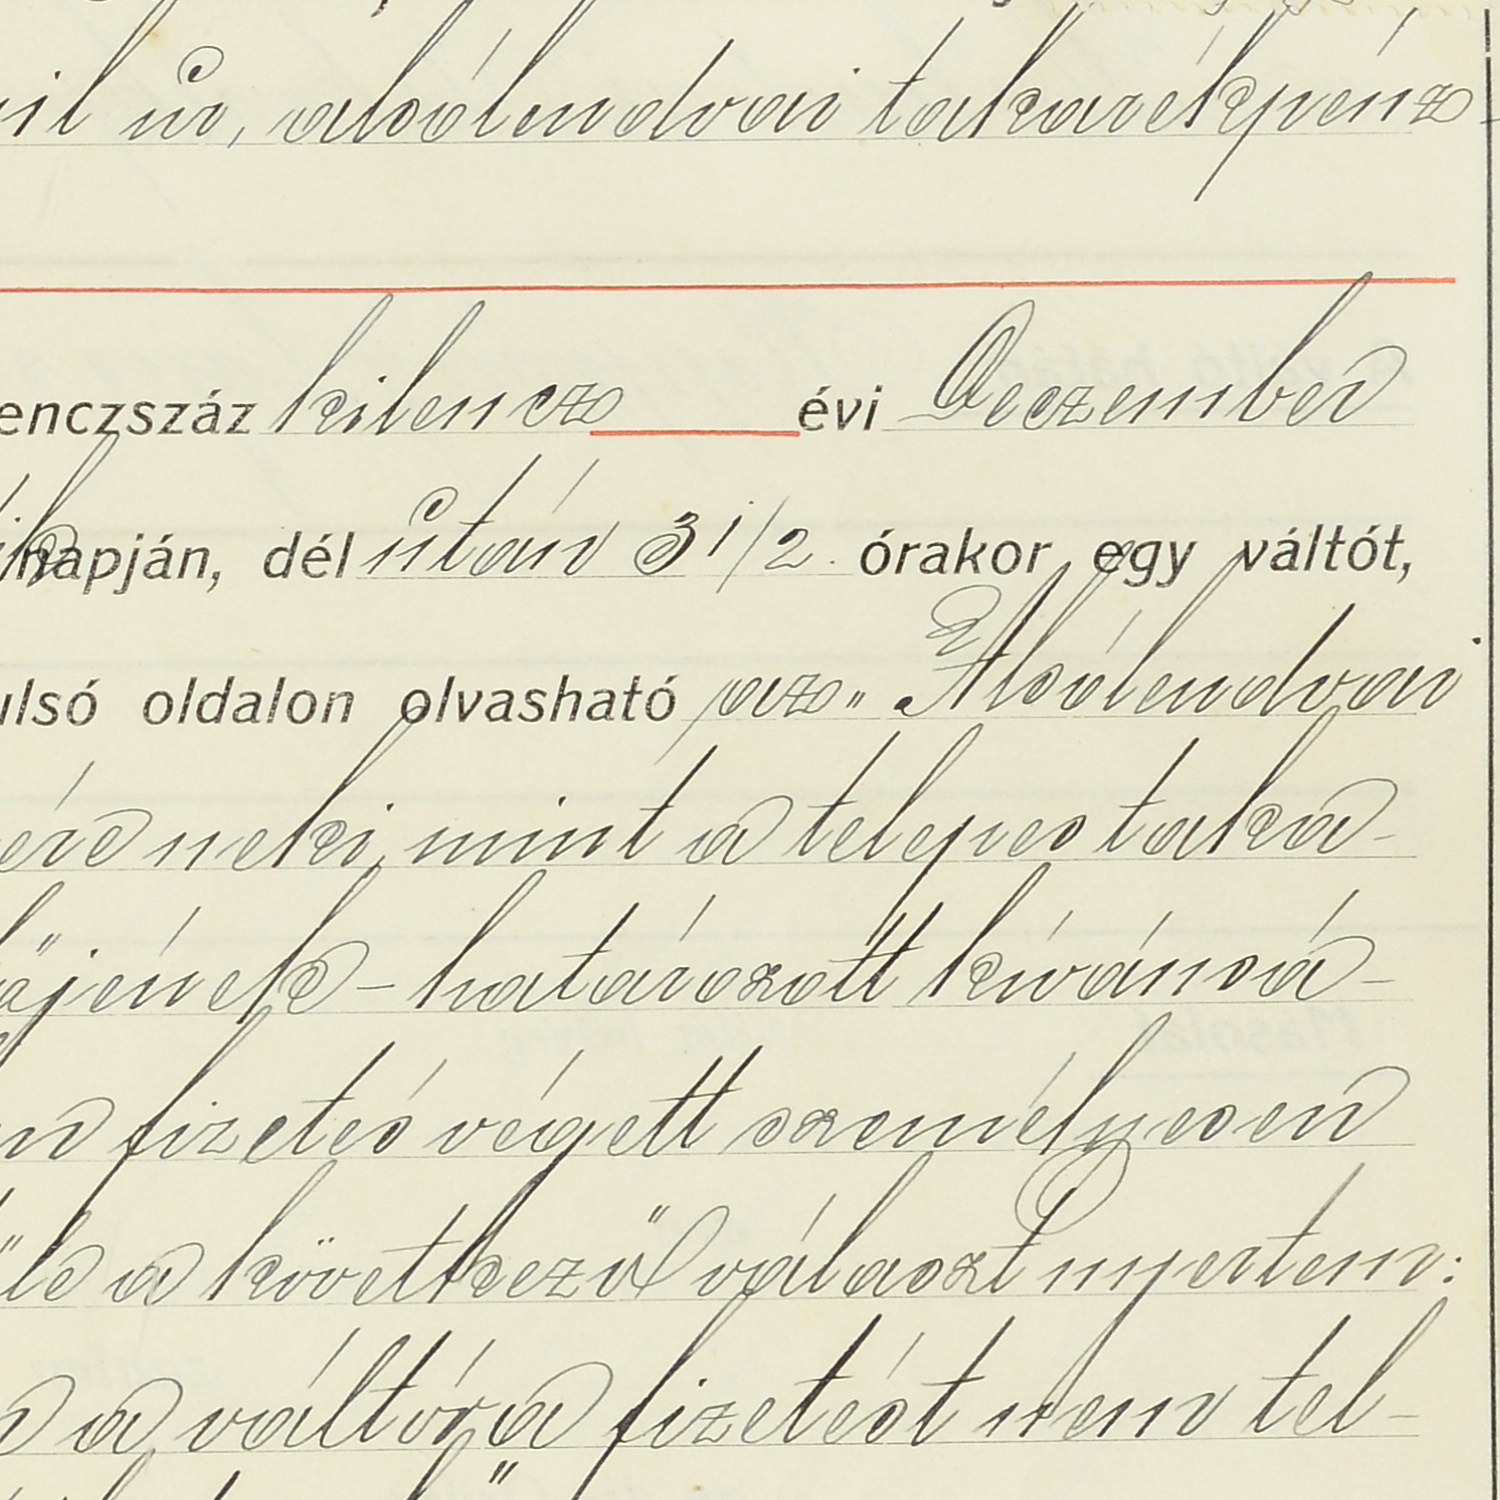 úr, alsólendvai takarékpénz-
enczszáz kilencz évi Deczember
napján, dél után 3 1/2 órakor egy váltót,
ulsó oldalon olvasható az „Alsólendvai
neki, mint a telepes taka-
jének - határozott kívánsá-
fizetés végett személyesen
a következő választ nyertem:
a váltóra fizetést nem tel-